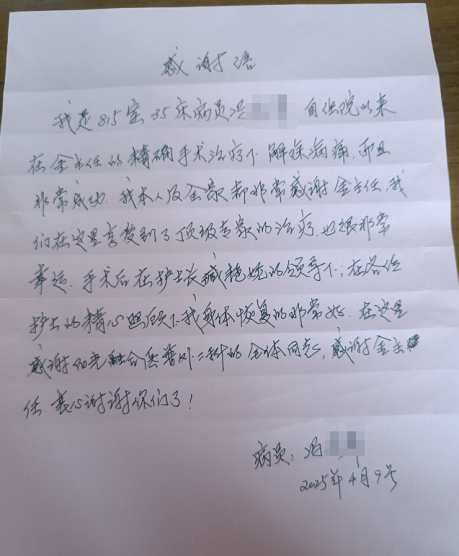 感谢信
我是815室35床病员冯 自住院以来
在金主任的精确手术治疗下,解除病痛,而且
非常成功.我本人及全家都非常感谢金主任,我
们在这里享受到了顶级专家的治疗,也很非常
幸运.手术后在护士长臧艳妮的领导下,在各位
护士的精心照顾下,我身体恢复的非常好.在这里
感谢阳光融合医普外二科的全体同志,感谢金主
任.衷心谢谢你们了!
病员:冯
2025年4月9号